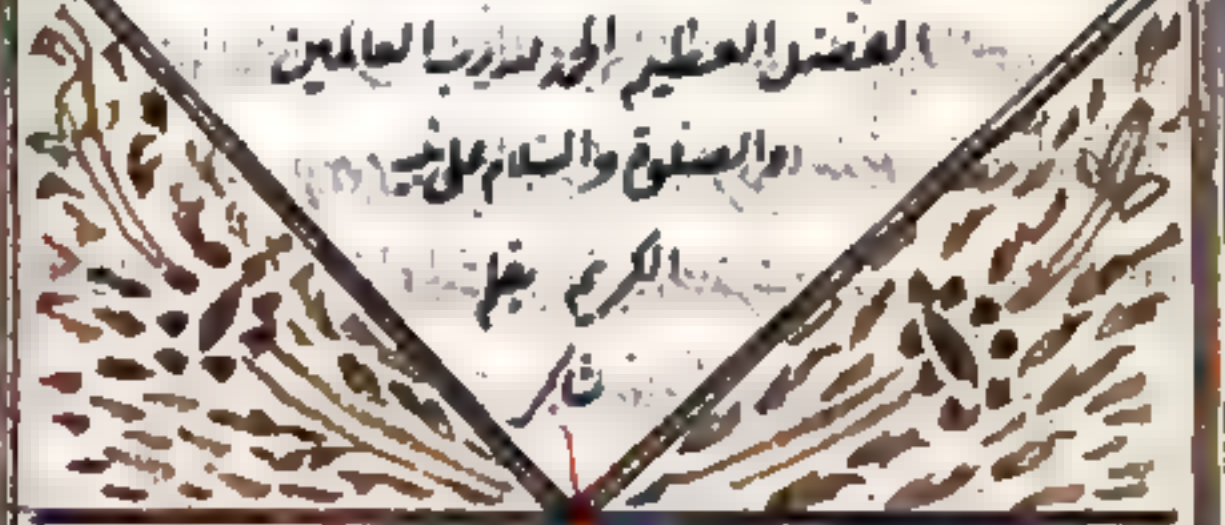 الفضل العظيم الحمد لله رب العالمين
والصلوة والسلام على نبيه
الكريم